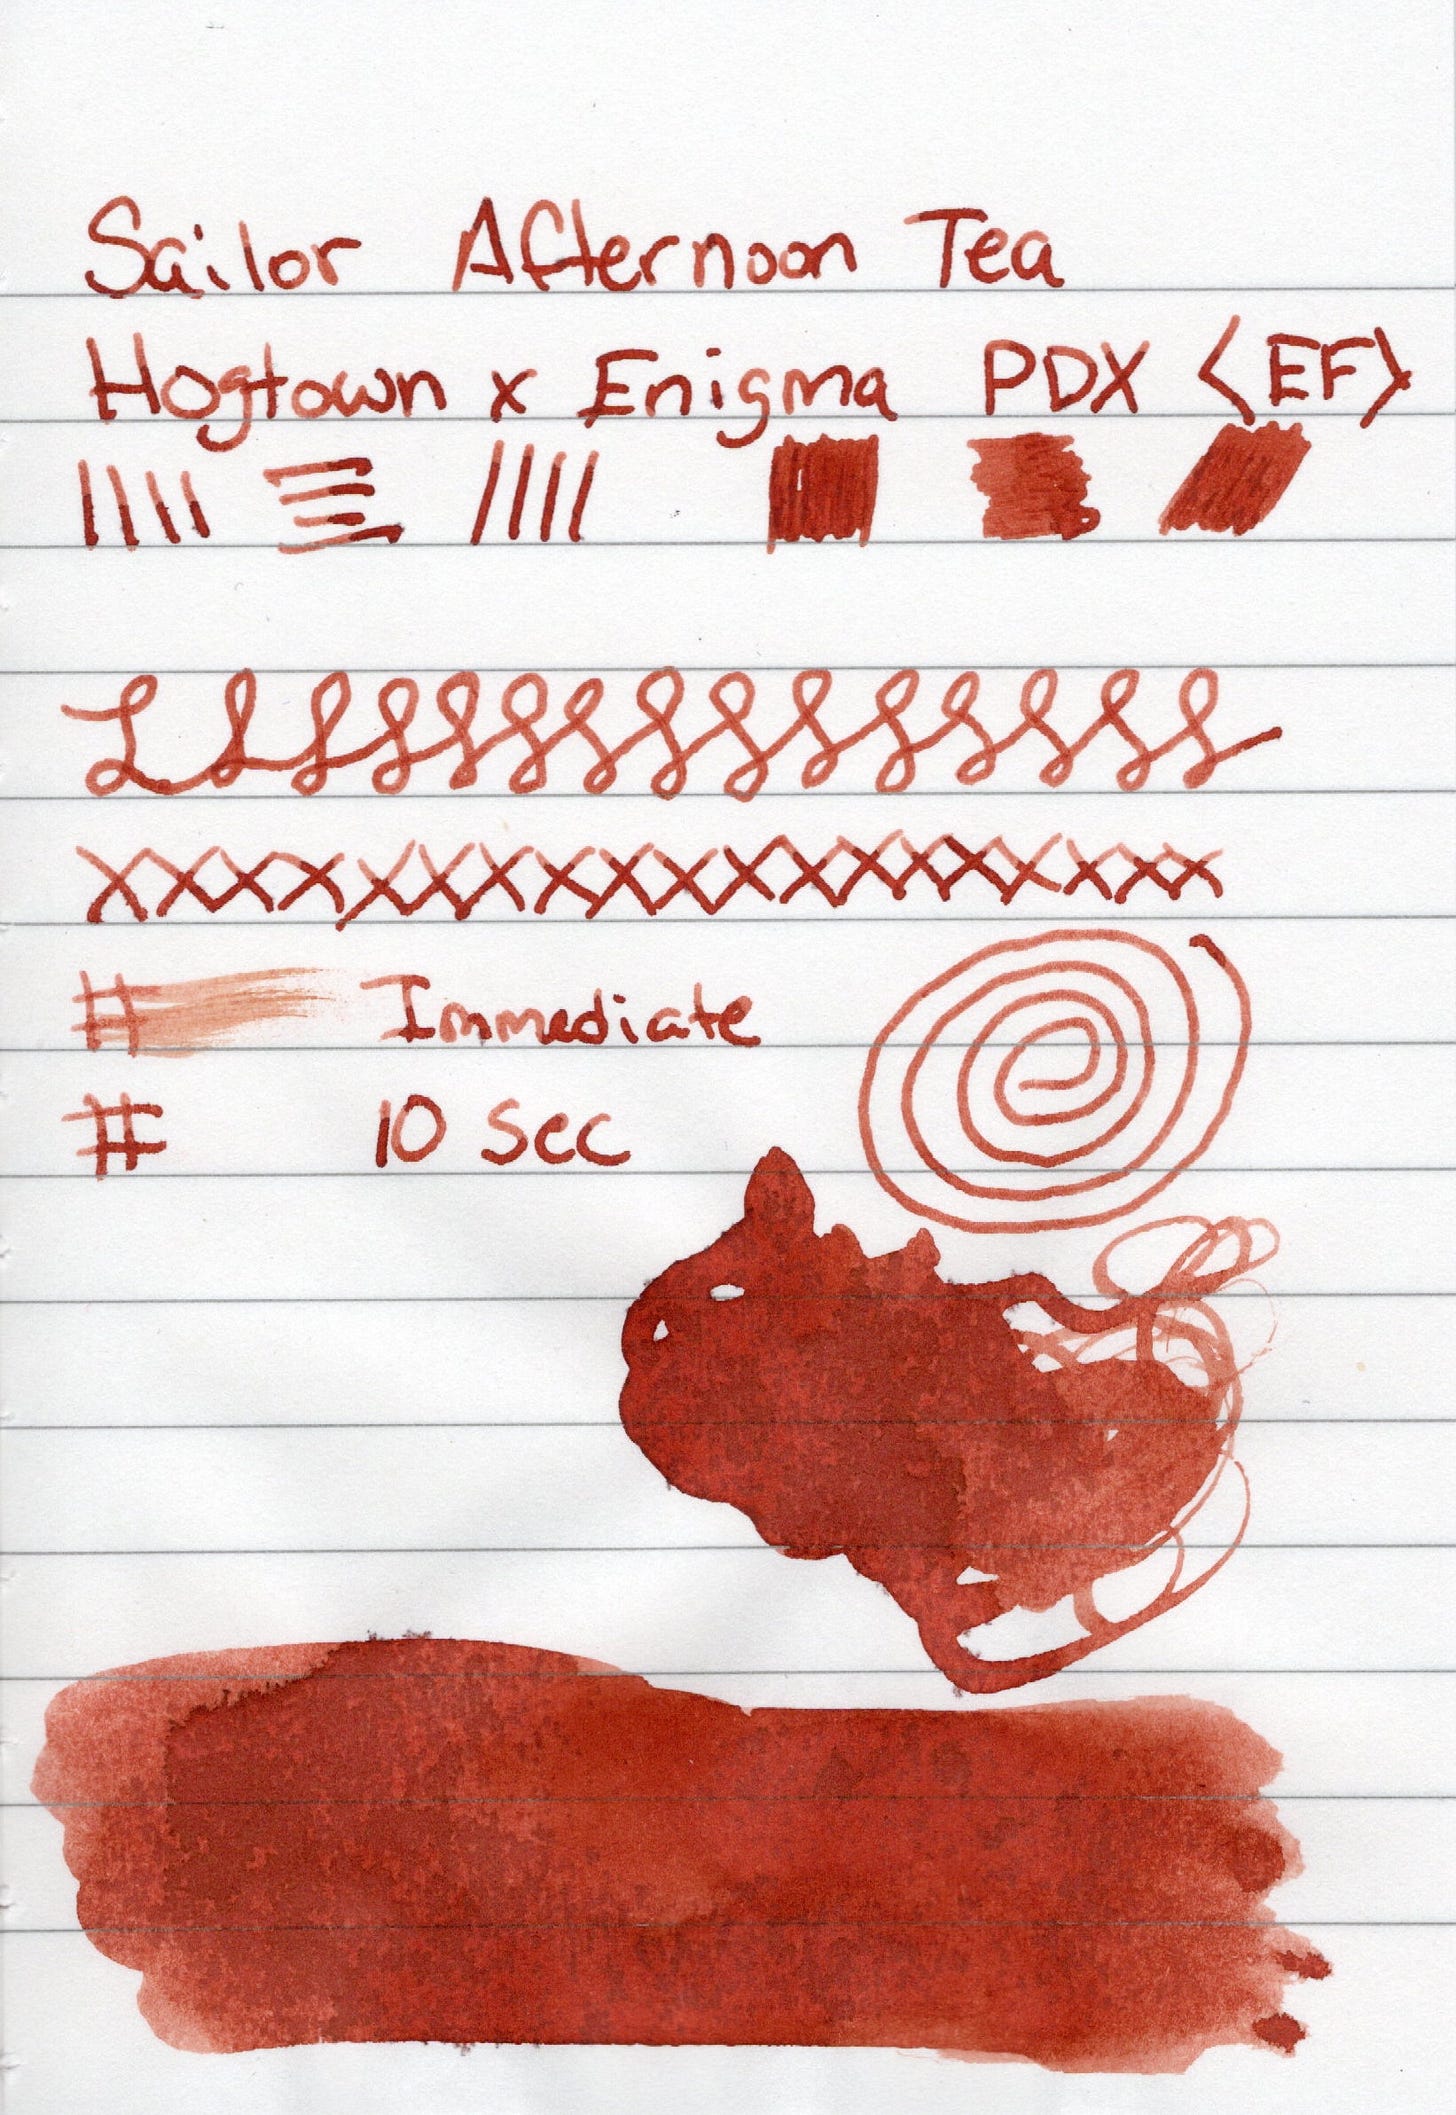 Sailor Afternoon Tea
Hogtown x Enigma PDX <EF>
# Immediate
# 10 Sec